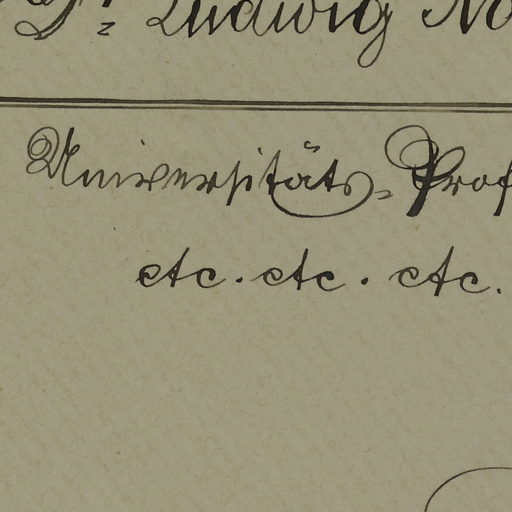 Ludwig
Universitäts-Prof
etc. etc. etc.